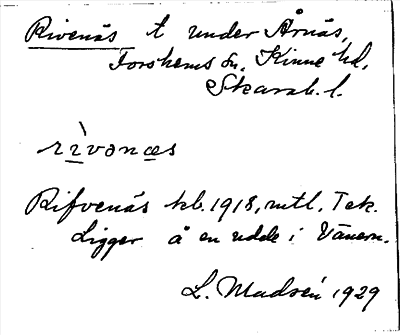 Rivenäs t under Årnäs,
Forshems sn, Kinne hd,
Skarab. l.
rìvənæs
Rifvenäs kb. 1918, mtl, Tek.
Ligger å en udde i Vänern.
L. Madsén 1929